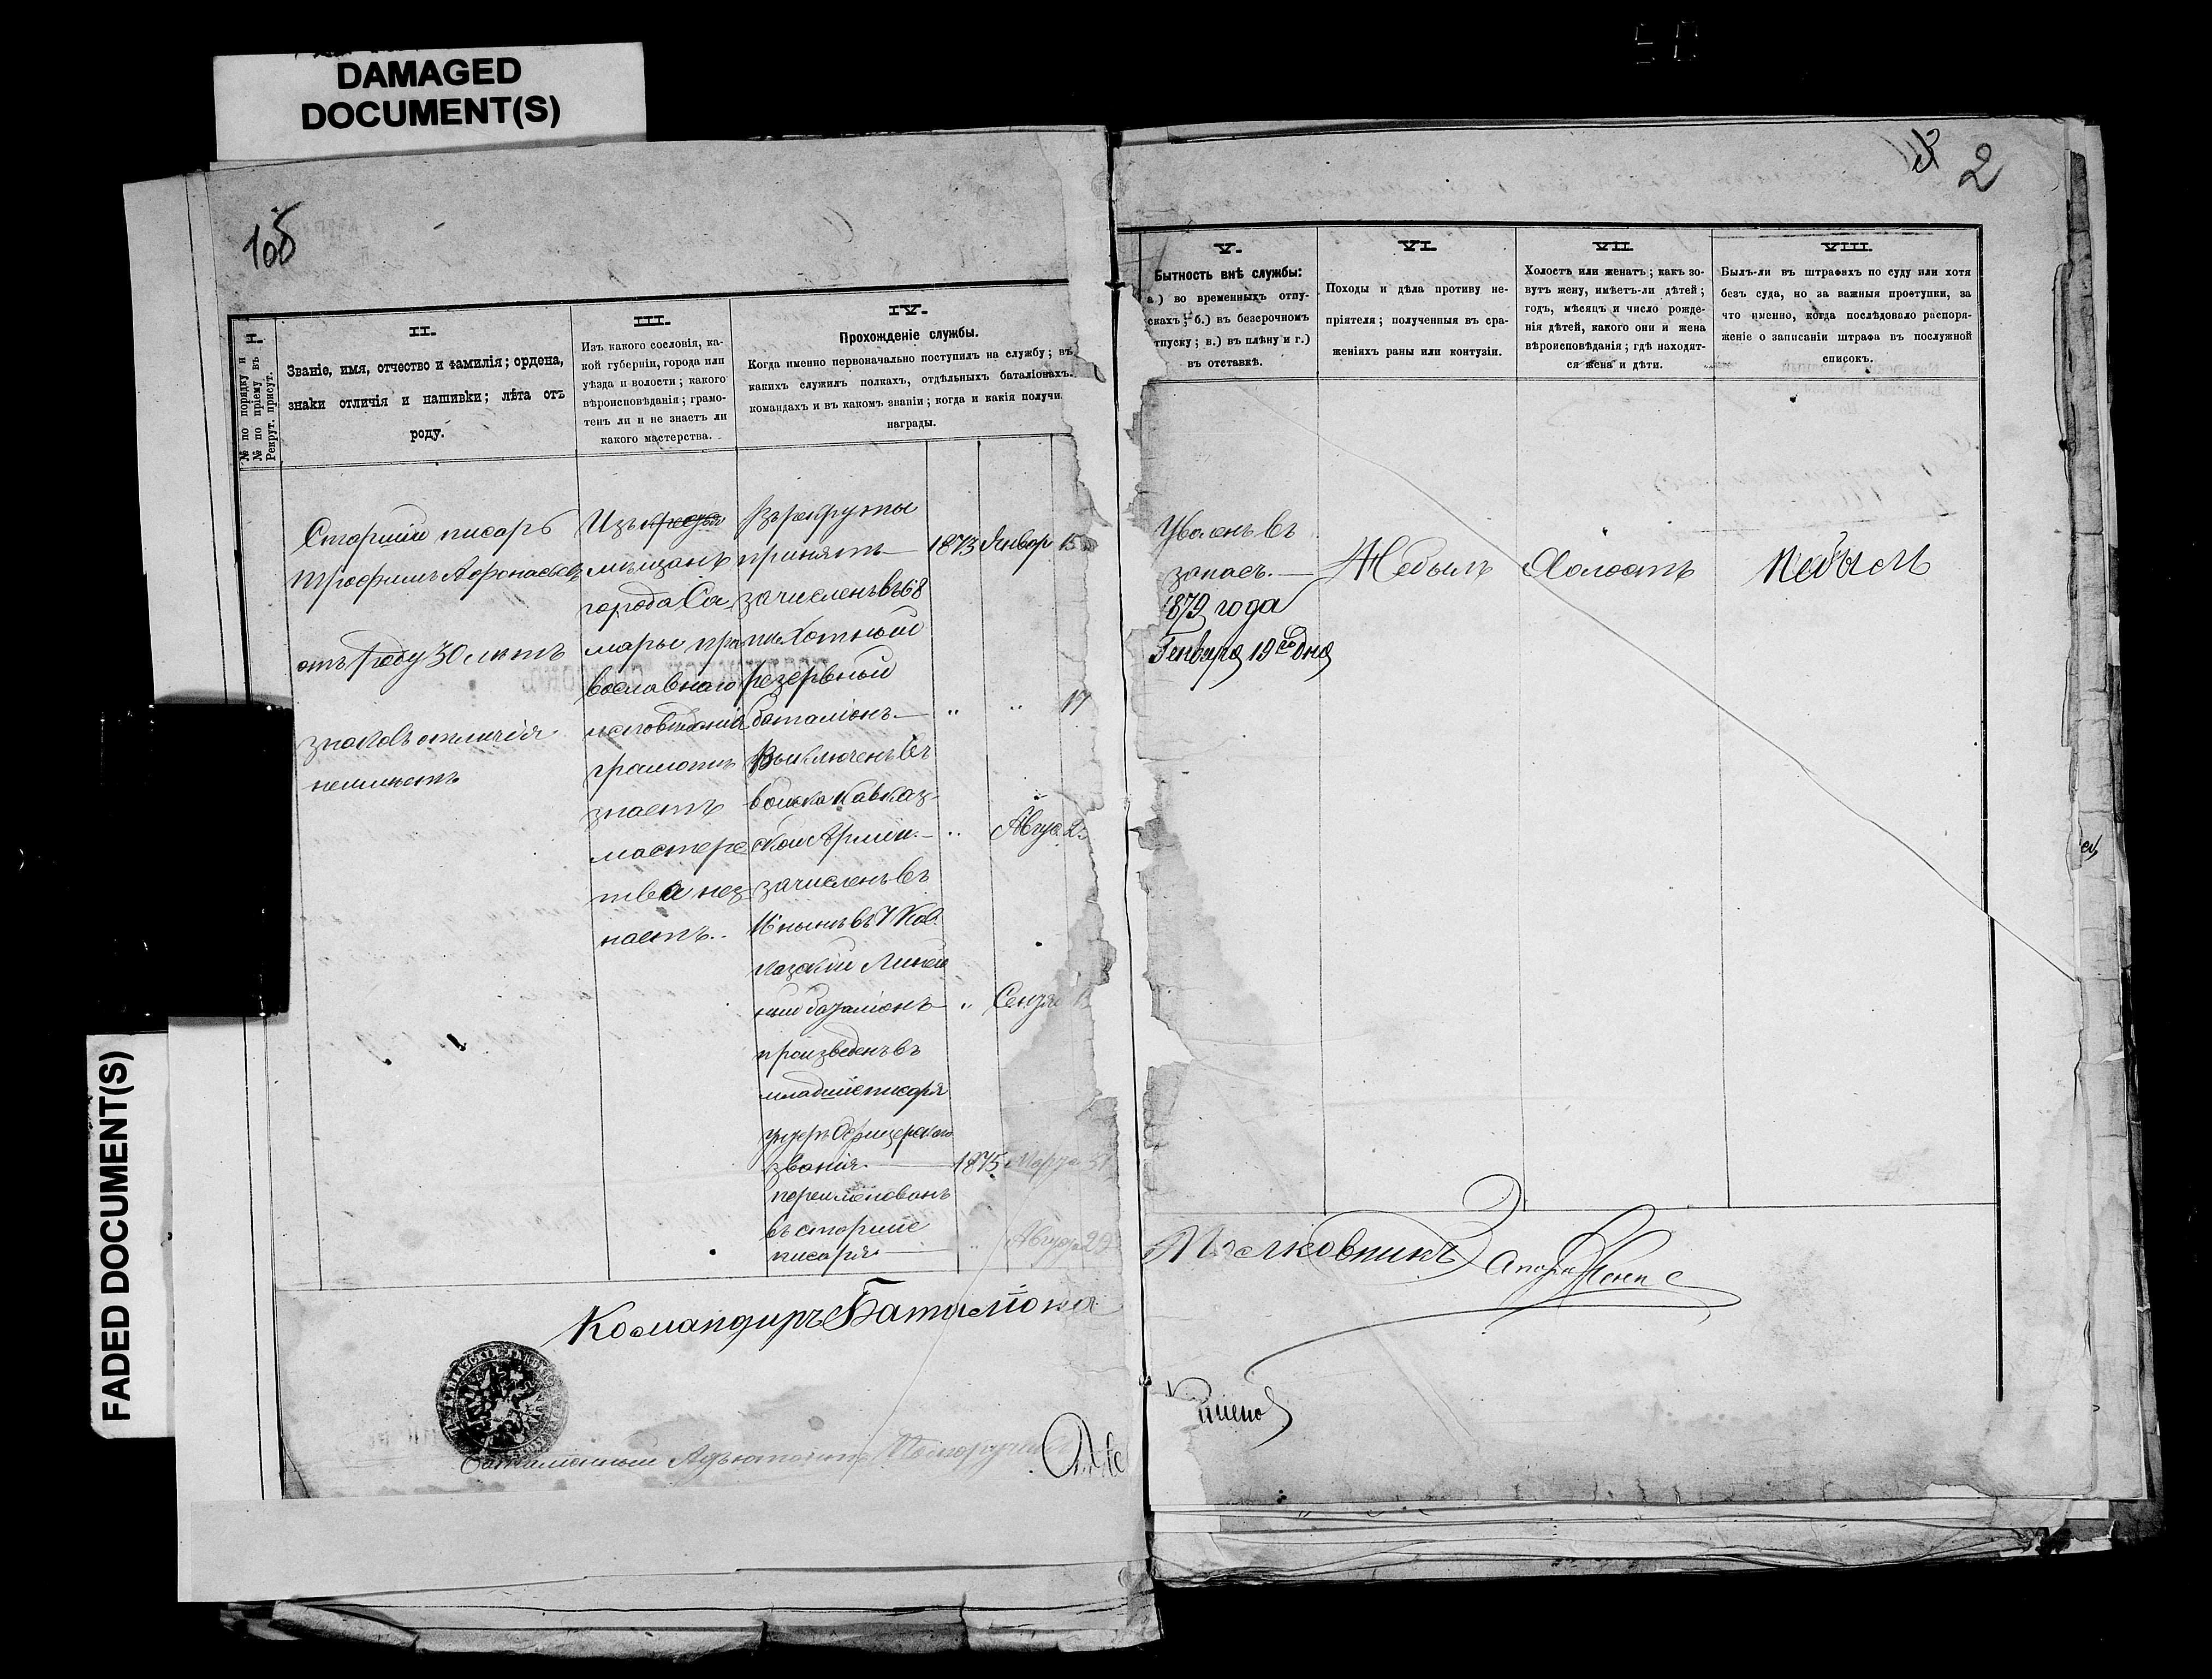 DAMAGED
DOCUMENT(S)
FADED DOCUMENT(S)
2
I.
№ по порядку и
№ по пріему въ
Рекрут. присут.
II.
Званіе, имя, отчество и фамилія; ордена,
знаки отличія и нашивки; лѣта отъ
роду.
III.
Изъ какого сословія, ка-
кой губерніи, города или
уѣзда и волости; какого
вѣроисповѣданія; грамо-
тенъ ли и не знаетъ ли
какого мастерства.
IV.
Прохожденіе службы.
Когда именно первоначально поступилъ на службу; въ
какихъ служилъ полкахъ, отдѣльныхъ баталіонахъ,
командахъ и въ какомъ званіи; когда и какія получи
награды.
V.
Бытность внѣ службы:
а.) во временныхъ отпу-
скахъ; б.) въ безсрочномъ
тпуску; в.) въ плѣну и г.)
въ отставкѣ.
VI.
Походы и дѣла противу не-
пріятеля; полученныя въ сра-
женіяхъ раны или контузіи.
VII.
Холостъ или женатъ; какъ зо-
вутъ жену, имѣетъ-ли дѣтей;
годъ, мѣсяцъ и число рожде-
нія дѣтей, какого они и жена
вѣроисповѣданія; гдѣ находят-
ся жена и дѣти.
VIII.
Былъ-ли въ штрафахъ по суду или хотя
безъ суда, но за важныя проступки, за
что именно, когда послѣдовало распоря-
женіе о записаніи штрафа въ послужной
списокъ.
Старшій писарь
Трофимъ Афонасьевъ
отъ роду 30 лѣтъ
знаковъ отличія
неимѣетъ
Изъ
мѣщанъ
города Са
мары пра
вославнаго
исповѣданія
грамотѣ
знаетъ
мастерс
тва нез
наетъ.
Въ рекруты
принятъ — 1873 Январ 15
зачисленъ въ 68
пѣхотный
резервный
баталіонъ — " " 17
Выключенъ въ
войска Кавказ-
ской Арміи. — " Авгус.
зачисленъ въ
И нынѣ въ 7 Кав
казскій Линей
ный баталіонъ — " Сентя
произведенъ въ
младшіе писаря
унтеръ Офицерскаго
званія. — 1875 Марта 31
переименованъ
въ старшіе
писаря. — " Августа 29
Уволенъ въ
запасъ. —
1879 года
Генваря 19го дня
Небылъ
Холостъ
Небылъ
Командиръ Баталіона
Полковникъ
Баталіонный Адъютантъ Подпоручикъ